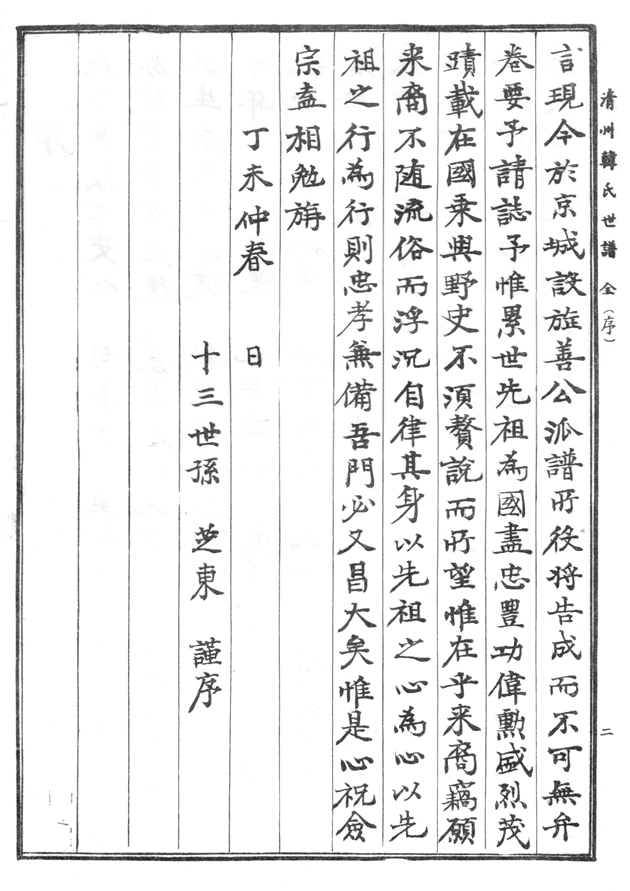 清州韓氏世譜 全(序)
二
言現今於京城設旌善公派譜所役將告成而不可無弁
卷要予請誌予惟累世先祖為國盡忠豊功偉勳盛烈茂
蹟載在國乗與野史不湏贅說而所望惟在乎来裔竊願
来裔不随流俗而浮沉自律其身以先祖之心為心以先
祖之行為行則忠孝兼備吾門必又昌大矣惟是心祝僉
宗盍相勉旃
丁未仲春 日
十三世孫 芝東 謹序